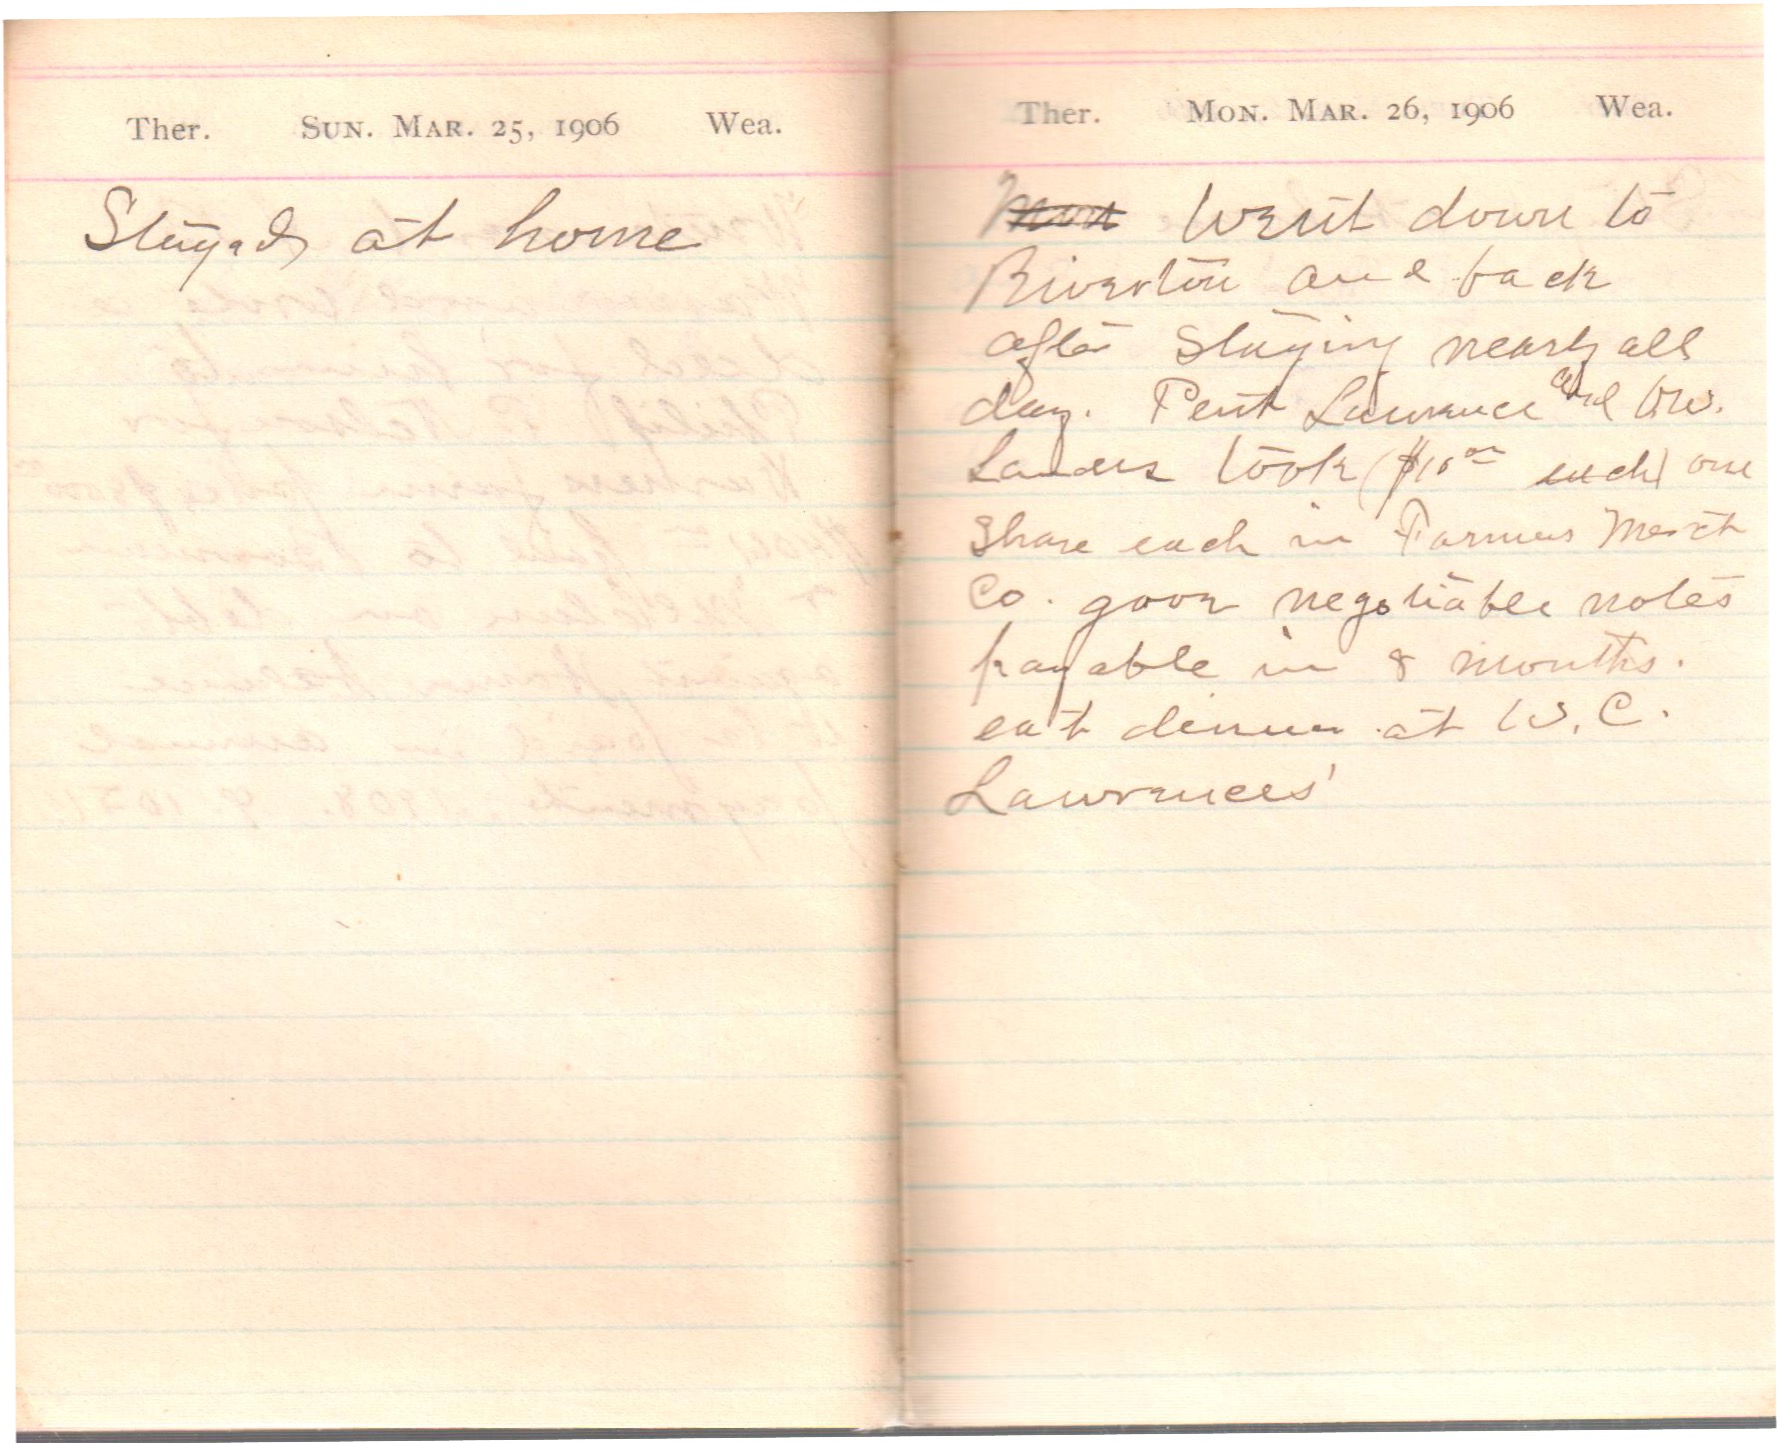 Ther. Sun. Mar. 25, 1906 Wea.
Stayed at home
Ther. Mon. Mar. 26, 1906 Wea.
Went down to
Riverton and back
after staying nearly all
day. Pent Lawrence and
Landers took ($10.00 each) one
share each in Farmers Merct
Co. gave negotiable notes
payable in 8 months.
eat dinner at W. C.
Lawrences'